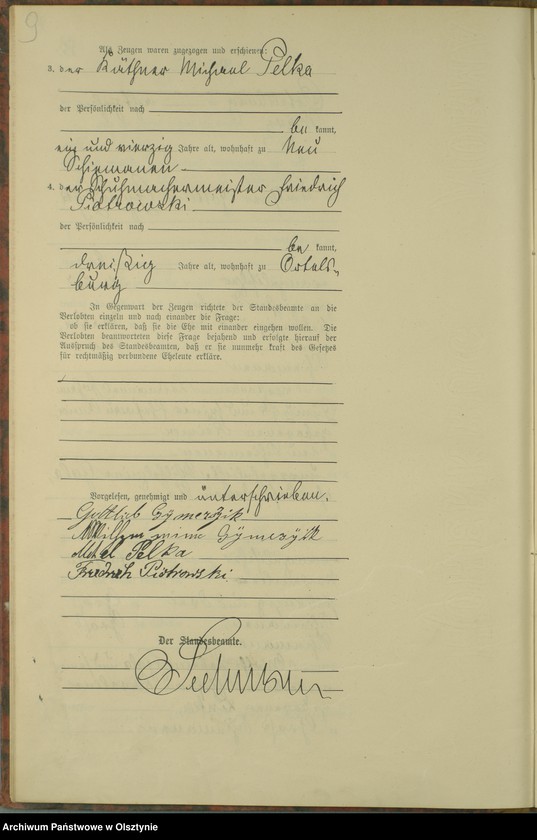 9
Als Zeugen waren zugezogen und erschienen:
3. der Käthner Michael Pelka
der Persönlichkeit nach
be kannt,
ein und vierzig Jahre alt, wohnhaft zu Neu
Schiemanen
4. der Schuhmachermeister Friedrich
Piotrowski
der Persönlichkeit nach
be kannt,
dreißig Jahre alt, wohnhaft zu Ortels-
burg
In Gegenwart der Zeugen richtete der Standesbeamte an die
Verlobten einzeln und nach einander die Frage:
ob sie erklären, daß sie die Ehe mit einander eingehen wollen. Die
Verlobten beantworteten diese Frage bejahend und erfolgte hierauf der
Ausspruch des Standesbeamten, daß er sie nunmehr kraft des Gesetzes
für rechtmäßig verbundene Eheleute erkläre.
Vorgelesen, genehmigt und unterschrieben.
Gottlieb
Pelka
Piotrowski
Der Standesbeamte.
Archiwum Państwowe w Olsztynie